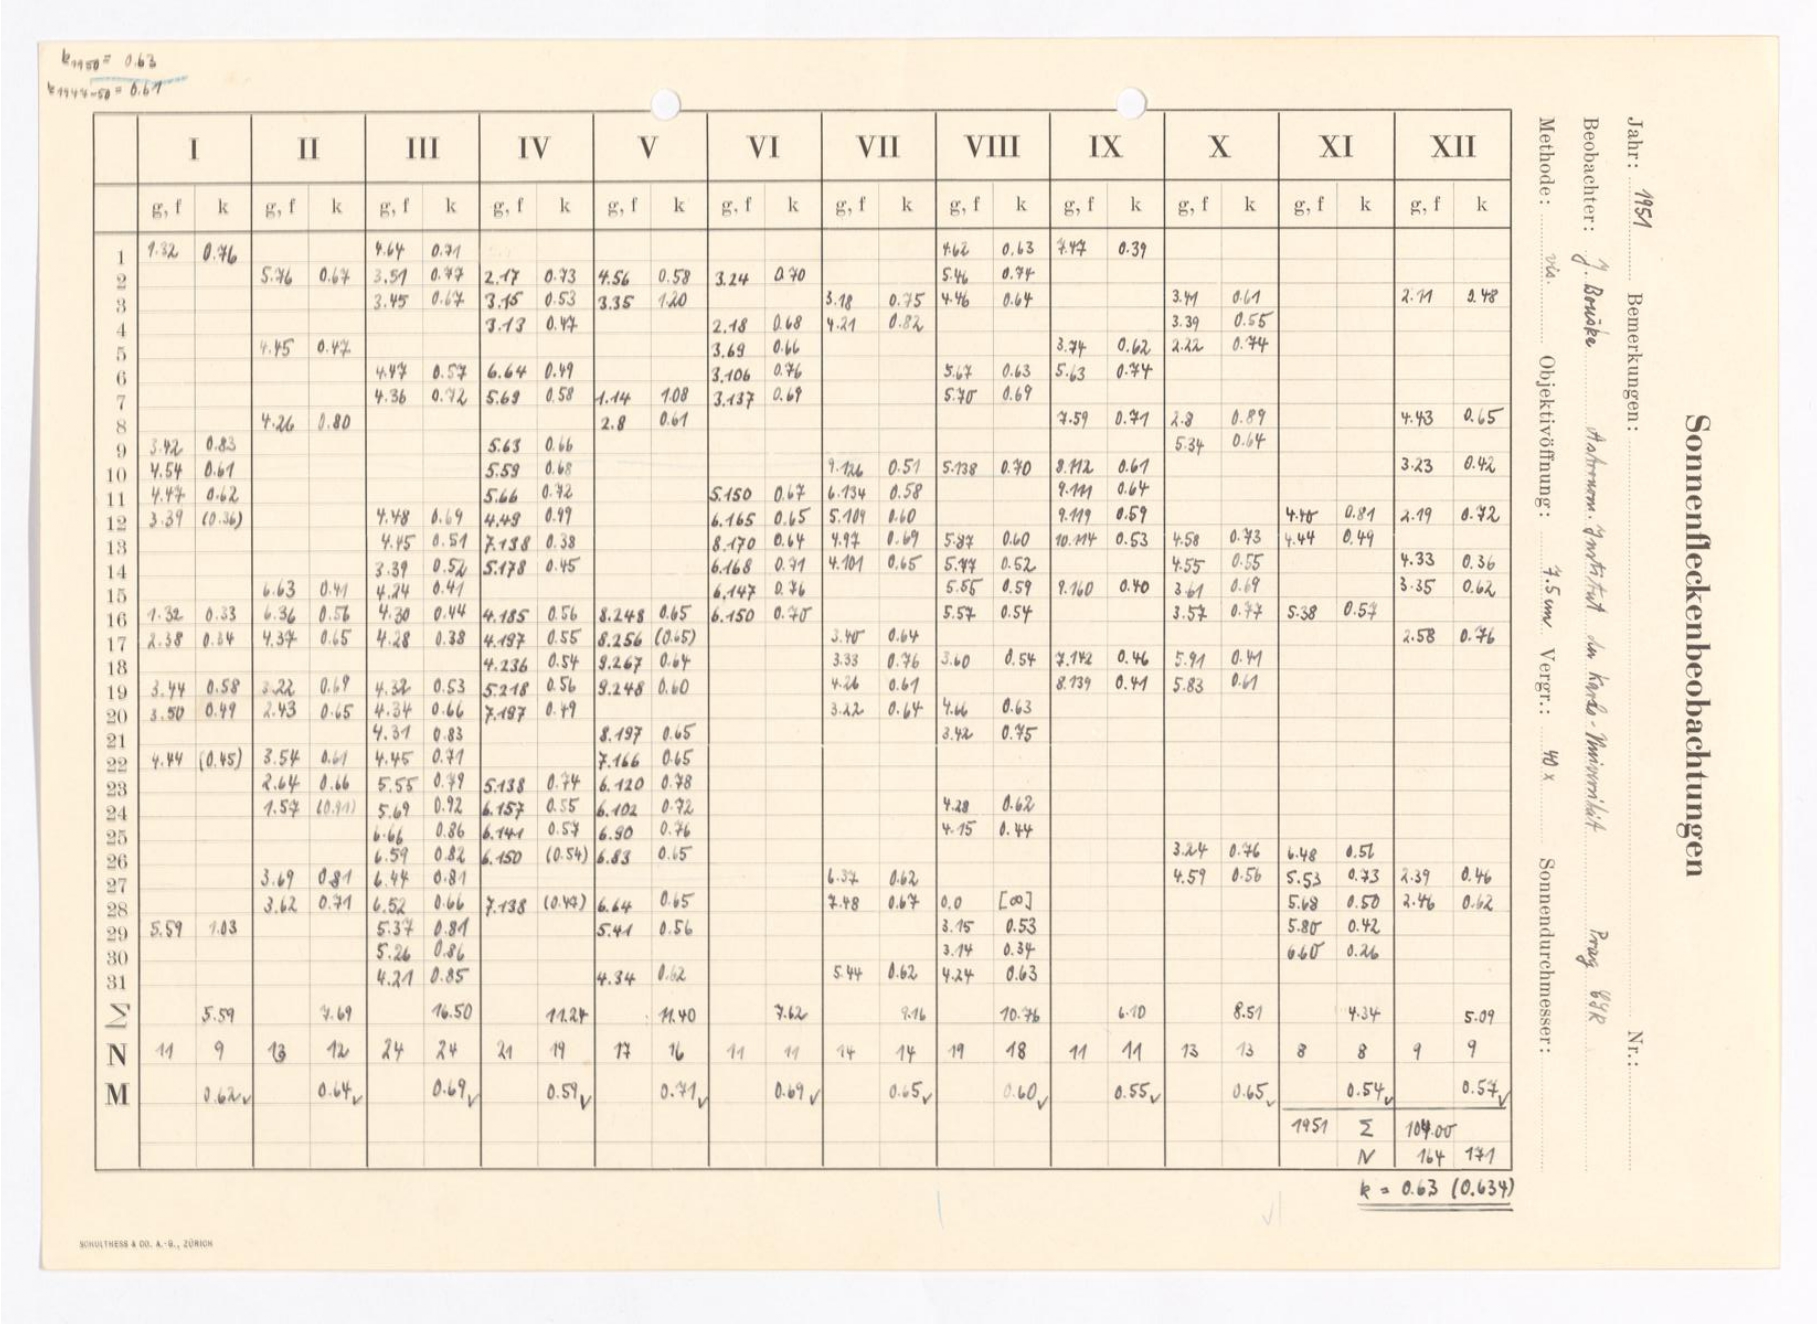 k1950 = 0.63
k1947-50 = 0.61
Sonnenfleckenbeobachtungen
Jahr: 1951 Bemerkungen: Nr.:
Beobachter: J. Bouška Astronom. Institut der Karls-Universität Prag ČSR
Methode: vis. Objektivöffnung: 7.5 cm Vergr.: 40 x Sonnendurchmesser:
I II III IV V VI VII VIII IX X XI XII
g, f k g, f k g, f k g, f k g, f k g, f k g, f k g, f k g, f k g, f k g, f k g, f k
1 1.32 0.76 4.64 0.71 4.62 0.63 7.47 0.39
2 5.76 0.67 3.51 0.77 2.17 0.73 4.56 0.58 3.24 0.70 5.46 0.74
3 3.45 0.67 3.15 0.53 3.35 1.20 3.18 0.75 4.46 0.64 3.41 0.61 2.11 0.48
4 3.13 0.47 2.18 0.68 4.21 0.82 3.39 0.55
5 4.45 0.47 3.69 0.66 3.74 0.62 2.22 0.74
6 4.47 0.57 6.64 0.49 3.106 0.76 5.67 0.63 5.63 0.74
7 4.36 0.72 5.69 0.58 1.14 1.08 3.137 0.69 5.70 0.69
8 4.26 0.80 2.8 0.61 7.59 0.71 2.8 0.89 4.43 0.65
9 3.42 0.83 5.63 0.66 5.34 0.64
10 4.54 0.61 5.59 0.68 9.126 0.51 5.138 0.70 8.112 0.61 3.23 0.42
11 4.47 0.62 5.66 0.72 5.150 0.67 6.134 0.58 9.111 0.64
12 3.39 (0.36) 4.48 0.69 4.49 0.99 6.165 0.65 5.109 0.60 9.119 0.59 4.40 0.81 2.19 0.72
13 4.45 0.51 7.138 0.38 8.170 0.64 4.97 0.69 5.87 0.60 10.114 0.53 4.58 0.73 4.44 0.49
14 3.39 0.52 5.178 0.45 6.168 0.71 4.101 0.65 5.77 0.52 4.55 0.55 4.33 0.36
15 6.63 0.41 4.24 0.41 6.147 0.76 5.55 0.59 9.160 0.40 3.61 0.69 3.35 0.62
16 1.32 0.33 6.36 0.56 4.30 0.44 4.185 0.56 8.248 0.65 6.150 0.70 5.57 0.54 3.57 0.77 5.38 0.57
17 2.38 0.34 4.37 0.65 4.28 0.38 4.197 0.55 8.256 (0.65) 3.40 0.64 2.58 0.76
18 4.236 0.54 9.267 0.64 3.33 0.76 3.60 0.54 7.142 0.46 5.91 0.41
19 3.44 0.58 3.22 0.69 4.32 0.53 5.218 0.56 9.248 0.60 4.26 0.61 8.139 0.41 5.83 0.61
20 3.50 0.49 2.43 0.65 4.34 0.66 7.197 0.49 3.22 0.64 4.66 0.63
21 4.31 0.83 8.197 0.65 3.42 0.75
22 4.44 (0.45) 3.54 0.61 4.45 0.71 7.166 0.65
23 2.64 0.66 5.55 0.79 5.138 0.74 6.120 0.78
24 1.57 (0.91) 5.69 0.92 6.157 0.55 6.102 0.72 4.28 0.62
25 6.66 0.86 6.141 0.57 6.90 0.76 4.15 0.44
26 6.59 0.82 6.150 (0.54) 6.83 0.65 3.24 0.76 6.48 0.56
27 3.69 0.81 6.44 0.81 6.37 0.62 4.59 0.56 5.53 0.73 2.39 0.46
28 3.62 0.71 6.52 0.66 7.138 (0.47) 6.64 0.65 7.48 0.67 0.0 [∞] 5.68 0.50 2.46 0.62
29 5.59 1.03 5.37 0.81 5.41 0.56 3.15 0.53 5.80 0.42
30 5.26 0.86 3.14 0.34 6.60 0.26
31 4.21 0.85 4.34 0.62 5.44 0.62 4.24 0.63
Σ 5.59 7.69 16.50 11.24 11.40 7.62 9.16 10.76 6.10 8.51 4.34 5.09
N 11 9 13 12 24 24 21 19 17 16 11 11 14 14 19 18 11 11 13 13 8 8 9 9
M 0.62✓ 0.64✓ 0.69✓ 0.59✓ 0.71✓ 0.69✓ 0.65✓ 0.60✓ 0.55✓ 0.65✓ 0.54✓ 0.57✓
1951 Σ 104.00
N 164 171
k = 0.63 (0.634)
SCHULTHESS & CO. A.-G., ZÜRICH